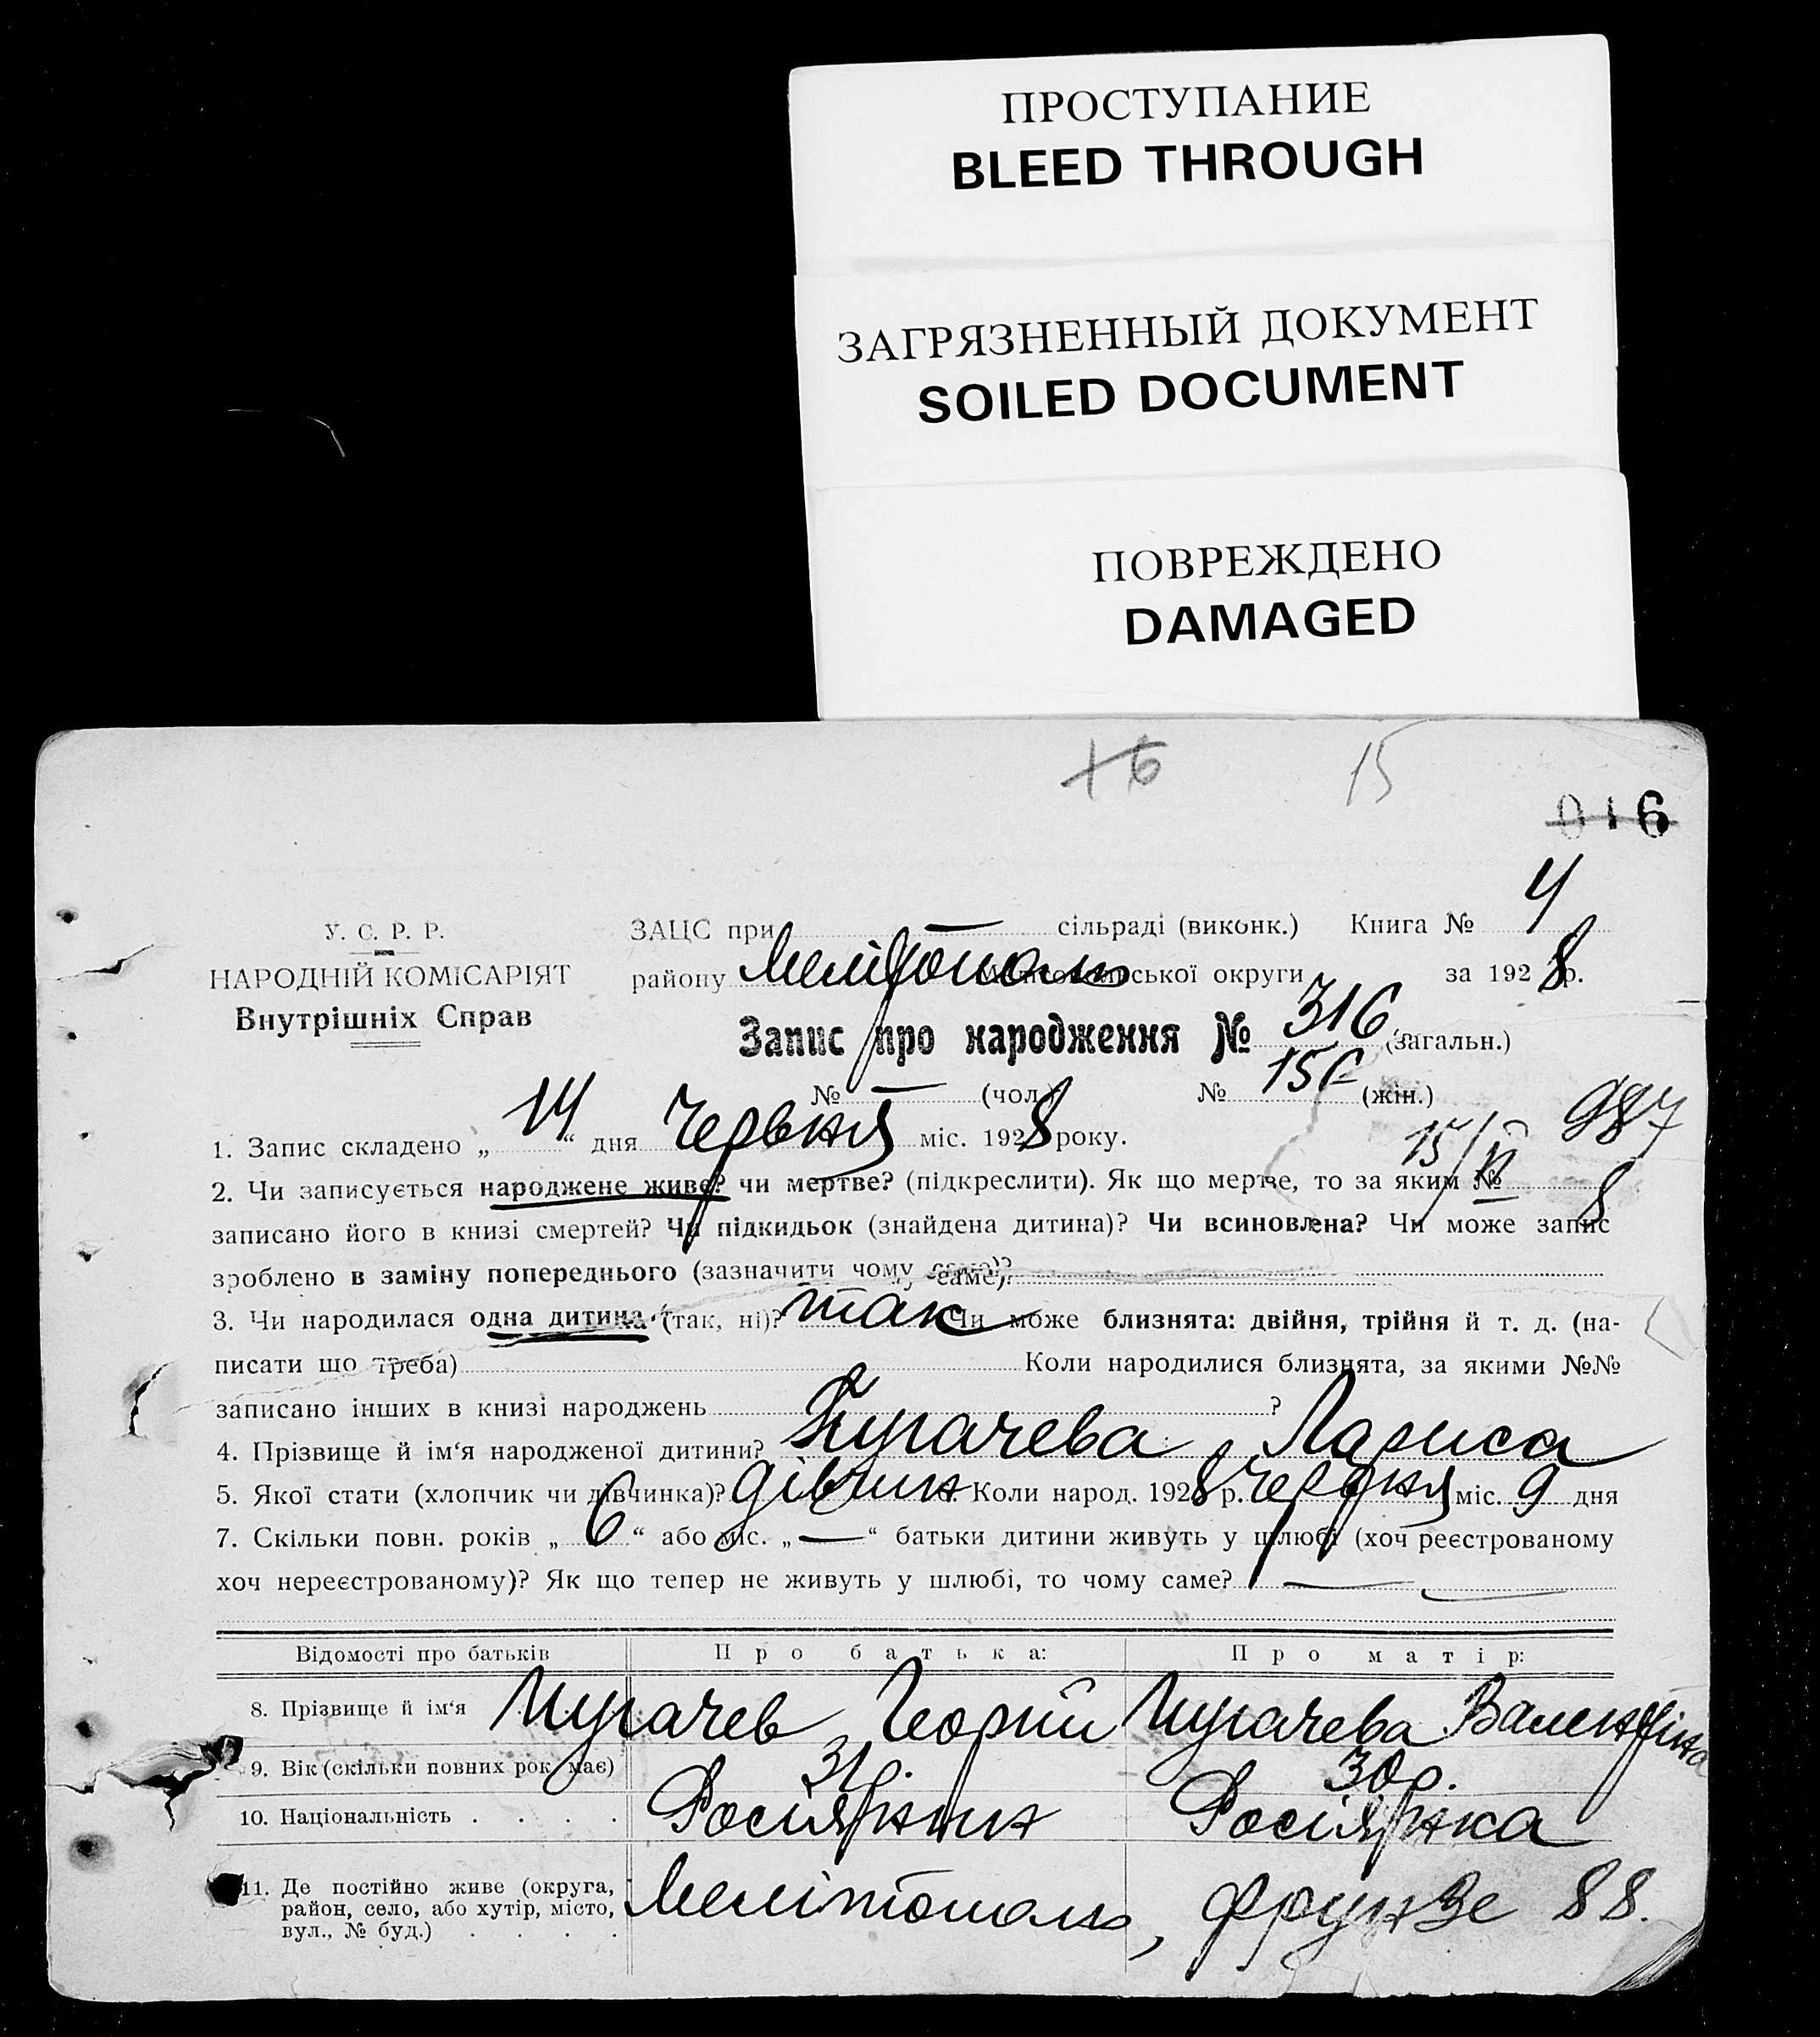 ПРОСТУПАНИЕ
BLEED THROUGH
ЗАГРЯЗНЕННЫЙ ДОКУМЕНТ
SOILED DOCUMENT
ПОВРЕЖДЕНО
DAMAGED
16 15
016
У. С. Р. Р.
НАРОДНІЙ КОМІСАРІЯТ
Внутрішніх Справ
ЗАЦС при — сільраді (виконк.) Книга № 4
району Мелітополь округи за 1928 р.
Запис про народження № 316 (загальн.)
№ — (чол.) № 156 (жін.)
987
1. Запис складено „14“ дня Червня міс. 1928 року.
15/VI 8
2. Чи записується народжене живе? чи мертве? (підкреслити). Як що мертве, то за яким №
записано його в книзі смертей? Чи підкидьок (знайдена дитина)? Чи всиновлена? Чи може запис
зроблено в заміну попереднього (зазначити чому саме)?
3. Чи народилася одна дитина (так, ні)? так Чи може близнята: двійня, трійня й т. д. (на-
писати що треба) Коли народилися близнята, за якими №№
записано інших в книзі народжень ?
4. Прізвище й ім‘я народженої дитини? Пугачева Лариса
5. Якої стати (хлопчик чи дівчинка)? дівчин. Коли народ. 1928 р. Червня міс. 9 дня
7. Скільки повн. років „6“ або міс. „—“ батьки дитини живуть у шлюбі (хоч реєстрованому
хоч нереєстрованому)? Як що тепер не живуть у шлюбі, то чому саме? —
Відомості про батьків Про батька: Про матір:
8. Прізвище й ім‘я Пугачев Георгій Пугачева Валентіна
9. Вік (скільки повних рок. має) 31 р. 30 р.
10. Національність . . . . Росіянин Росіянка
11. Де постійно живе (округа,
район, село, або хутір, місто,
вул., № буд.) . . . .
Мелітополь, Фрунзе 88.